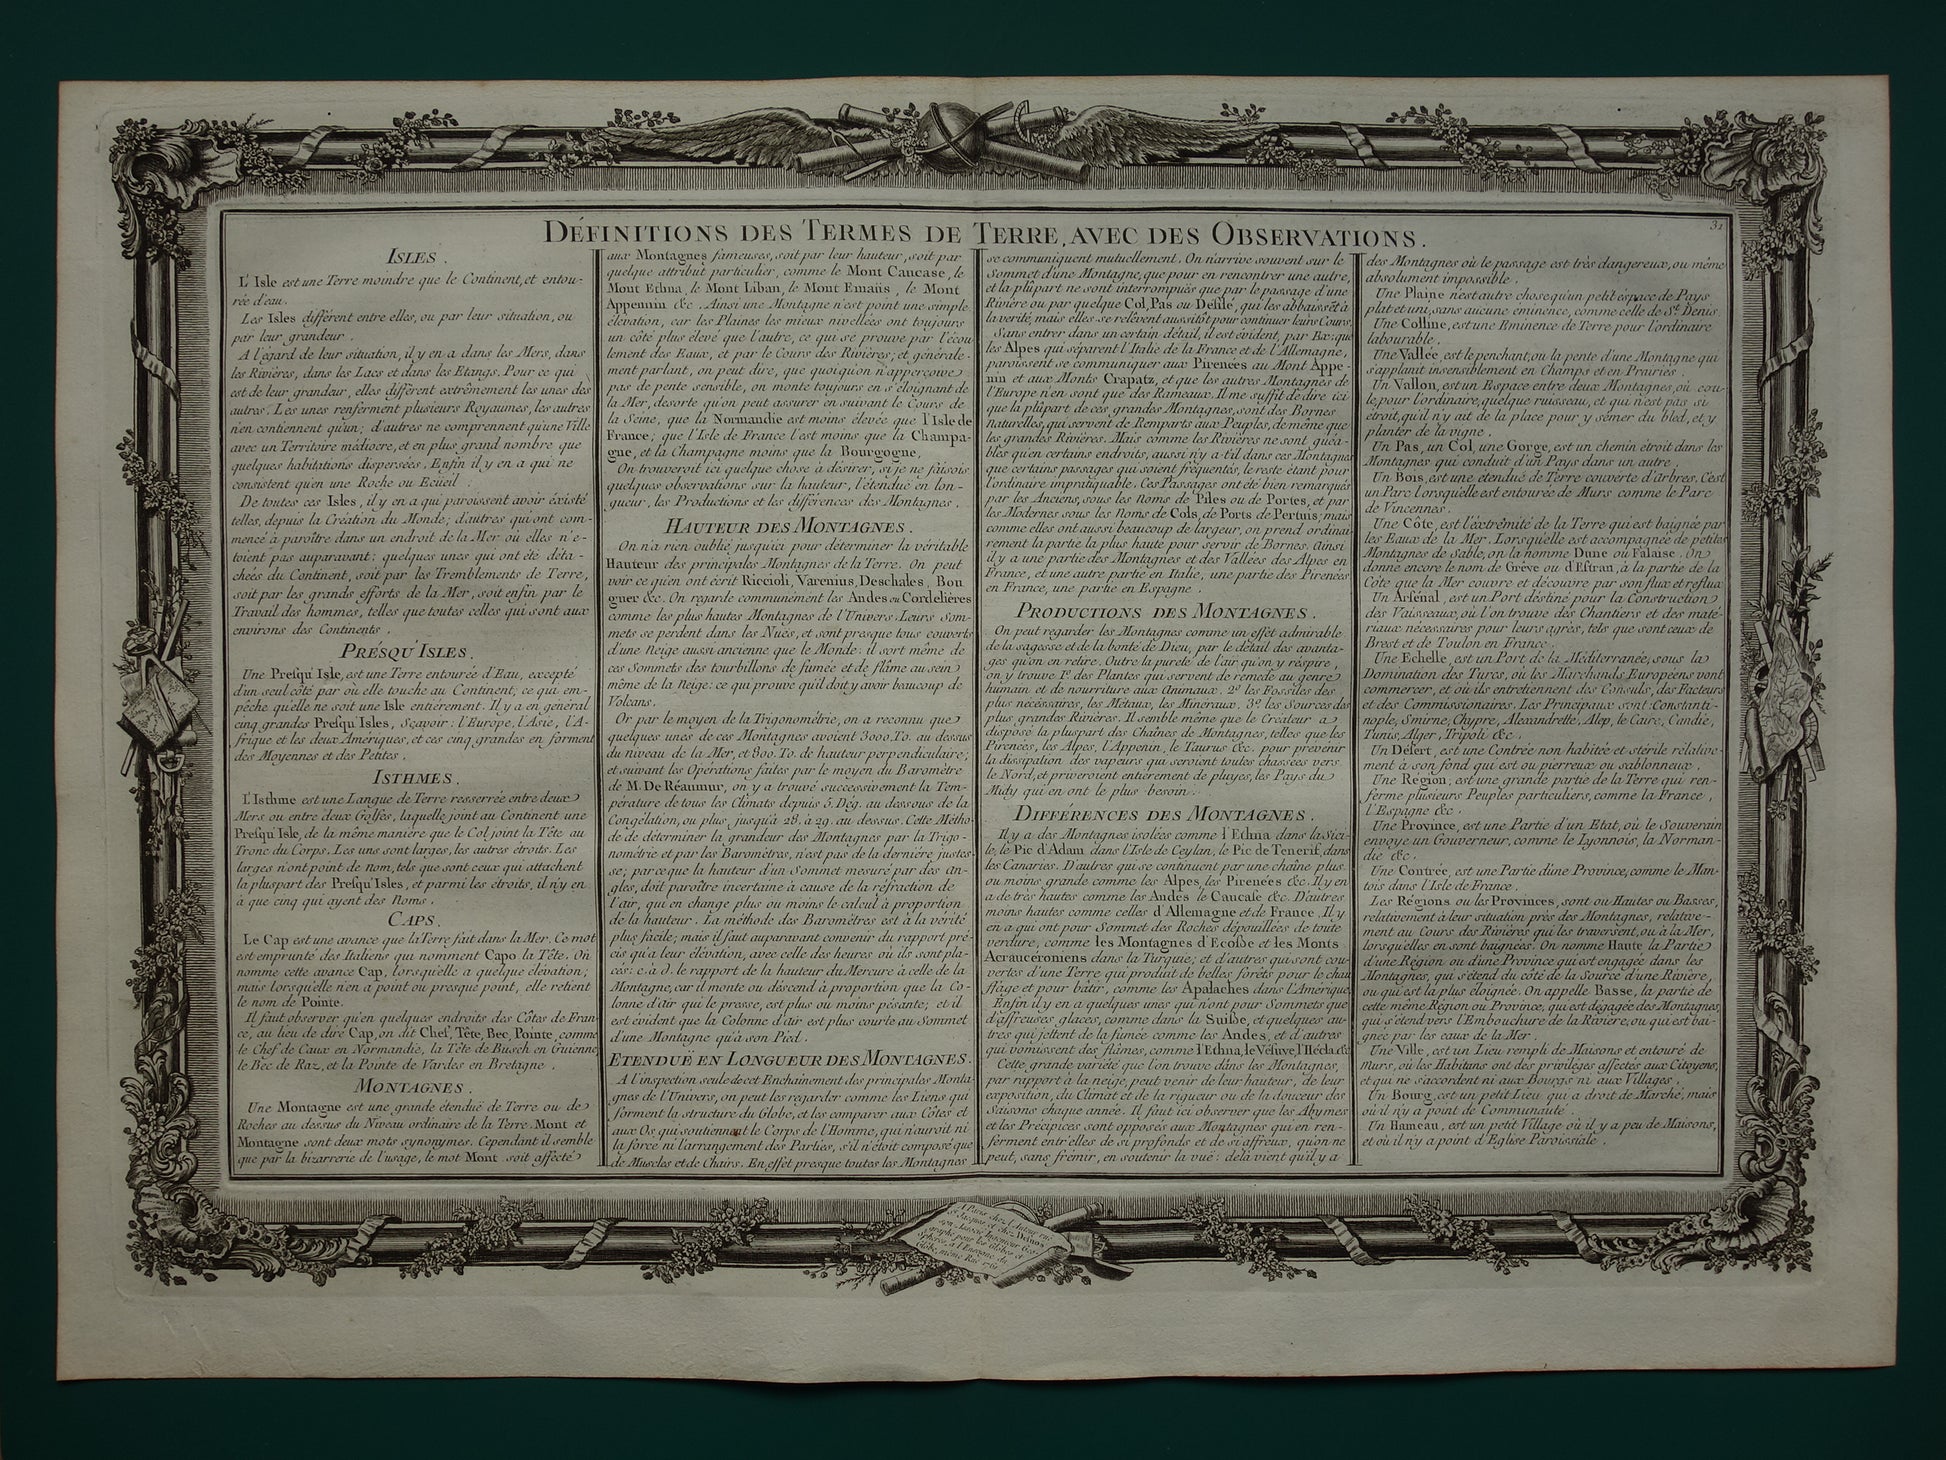 DÉFINITIONS DES TERMES DE TERRE, AVEC DES OBSERVATIONS.
31
ISLES.
L'Isle est une Terre moindre que le Continent, et entou-
rée d'eau.
Les Isles different entre elles, ou par leur situation, ou
par leur grandeur.
A l'égard de leur situation, il y en a dans les Mers, dans
les Rivières, dans les Lacs et dans les Etangs. Pour ce qui
est de leur grandeur, elles différent extrêmement les unes des
autres. Les unes renferment plusieurs Royaumes, les autres
n'en contiennent qu'un; d'autres ne comprennent qu'une Ville
avec un Territoire médiocre, et en plus grand nombre que
quelques habitations dispersées. Enfin il y en a qui ne
consistent qu'en une Roche ou Ecüeil.
De toutes ces Isles, il y en a qui paroissent avoir éxisté
telles, depuis la Création du Monde; d'autres qui ont com-
mencé à paroître dans un endroit de la Mer où elles n'é-
toient pas auparavant: quelques unes qui ont été déta-
chées du Continent, soit par les Tremblements de Terre,
soit par les grands efforts de la Mer, soit enfin par le
Travail des hommes, telles que toutes celles qui sont aux
environs des Continents.
PRESQU'ISLES.
Une Presqu'Isle, est une Terre entourée d'Eau, excepté
d'un seul côté par où elle touche au Continent, ce qui em-
pêche qu'elle ne soit une Isle entièrement. Il y a en général
cinq grandes Presqu'Isles, Sçavoir: l'Europe, l'Asie, l'A-
frique et les deux Amériques, et ces cinq grandes en forment
des Moyennes et des Petites.
ISTHMES.
L'Isthme est une Langue de Terre resserrée entre deux
Mers ou entre deux Golfes, laquelle joint au Continent une
Presqu'Isle, de la même manière que le Col joint la Tête au
Tronc du Corps. Les uns sont larges, les autres étroits. Les
larges n'ont point de nom, tels que sont ceux qui attachent
la pluspart des Presqu'Isles, et parmi les étroits, il n'y en
a que cinq qui ayent des Noms.
CAPS.
Le Cap est une avance que la Terre fait dans la Mer. Ce mot
est emprunté des Italiens qui nomment Capo la Tête. On
nomme cette avance Cap, lorsqu'elle a quelque élévation;
mais lorsqu'elle n'en a point ou presque point, elle retient
le nom de Pointe.
Il faut observer qu'en quelques endroits des Côtes de Fran-
ce, au lieu de dire Cap, on dit Chef, Tête, Bec, Pointe, comme
le Chef de Caux en Normandie, la Tête de Busch en Guienne,
le Bec de Raz, et la Pointe de Vardes en Bretagne.
MONTAGNES.
Une Montagne est une grande étenduë de Terre ou de
Roches au dessus du Niveau ordinaire de la Terre. Mont et
Montagne sont deux mots synonymes. Cependant il semble
que par la bizarrerie de l'usage, le mot Mont soit affecté
aux Montagnes fameuses, soit par leur hauteur, soit par
quelque attribut particulier, comme le Mont Caucase, le
Mont Ethna, le Mont Liban, le Mont Emaüs, le Mont
Appennin &c. Ainsi une Montagne n'est point une simple
élévation, car les Plaines les mieux nivellées ont toujours
un côté plus élevé que l'autre, ce qui se prouve par l'écou-
lement des Eaux, et par le Cours des Rivières; et générale-
ment parlant, on peut dire, que quoiqu'on n'apperçoive
pas de pente sensible, on monte toujours en s'éloignant de
la Mer, desorte qu'on peut assurer en suivant le Cours de
la Seine, que la Normandie est moins élevée que l'Isle de
France; que l'Isle de France l'est moins que la Champa-
gne, et la Champagne moins que la Bourgogne,
On trouveroit ici quelque chose à désirer, si je ne faisois
quelques observations sur: la hauteur, l'étenduë en lon-
gueur, les Productions et les différences des Montagnes.
HAUTEUR DES MONTAGNES.
On n'a rien oublié jusqu'ici pour déterminer la véritable
Hauteur des principales Montagnes de la Terre. On peut
voir ce qu'en ont écrit Riccioli, Varenius, Deschales, Bou
guer &c. On regarde communément les Andes ou Cordelières
comme les plus hautes Montagnes de l'Univers. Leurs Som-
mets se perdent dans les Nues, et sont presque tous couverts
d'une Neige aussi ancienne que le Monde: il sort même de
ces Sommets des tourbillons de fumée et de flâme au sein
même de la Neige: ce qui prouve qu'il doit y avoir beaucoup de
Volcans.
Or par le moyen de la Trigonométrie, on a reconnu que
quelques unes de ces Montagnes avoient 3000. To. au dessus
du niveau de la Mer, et 800. To. de hauteur perpendiculaire;
et suivant les Opérations faites par le moyen du Baromètre
de M. De Réaumur, on y a trouvé successivement la Tem-
pérature de tous les Climats depuis 5. Dég. au dessous de la
Congélation, ou plus, jusqu'à 28. à 29. au dessus. Cette Métho-
de de déterminer la grandeur des Montagnes par la Trigo-
nométrie et par les Baromètres, n'est pas de la dernière justes-
se; parce que la hauteur d'un Sommet mesuré par des an-
gles, doit paroître incertaine à cause de la réfraction de
l'air, qui en change plus ou moins le calcul à proportion
de la hauteur. La méthode des Baromètres est à la vérité
plus facile; mais il faut auparavant convenir du rapport pré-
cis qu'a leur élévation, avec celle des heures où ils sont pla-
cés: c. à d. le rapport de la hauteur du Mercure à celle de la
Montagne, car il monte ou déscend à proportion que la Co-
lonne d'air qui le presse, est plus ou moins pésante; et il
est évident que la Colonne d'air est plus courte au Sommet
d'une Montagne qu'à son Pied.
ETENDUË EN LONGUEUR DES MONTAGNES.
A l'inspection seule de cet Enchaînement des principales Monta-
gnes de l'Univers, on peut les regarder comme les Liens qui
forment la structure du Globe, et les comparer aux Côtes et
aux Os qui soutiennent le Corps de l'Homme, qui n'auroit ni
la force ni l'arrangement des Parties, s'il n'étoit composé que
de Muscles et de Chairs. En effét presque toutes les Montagnes
se communiquent mutuellement. On n'arrive souvent sur le
Sommet d'une Montagne, que pour en rencontrer une autre,
et la plûpart ne sont interrompuës que par le passage d'une
Rivière ou par quelque Col, Pas ou Défilé, qui les abbaisse à
la verité, mais elles se relèvent aussitôt pour continuer leurs Cours.
Sans entrer dans un certain détail, il est évident, par Ex: que
les Alpes qui séparent l'Italie de la France et de l'Allemagne,
paroissent se communiquer aux Pirenées au Mont Appe-
nin et aux Monts Crapatz, et que les autres Montagnes de
l'Europe n'en sont que des Rameaux. Il me suffit de dire ici
que la plûpart de ces grandes Montagnes, sont des Bornes
naturelles, qui servent de Remparts aux Peuples, de même que
les grandes Rivières. Mais comme les Rivières ne sont guéa-
bles qu'en certains endroits, aussi n'y a-t'il dans ces Montagnes
que certains passages qui soient fréquentés, le reste étant pour
l'ordinaire impratiquable. Ces Passages ont été bien remarqués
par les Anciens, sous les Noms de Piles ou de Portes, et par
les Modernes sous les Noms de Cols, de Ports de Pertuis; mais
comme elles ont aussi beaucoup de largeur, on prend ordinai
rement la partie la plus haute pour servir de Bornes. Ainsi
il y a une partie des Montagnes et des Vallées des Alpes en
France, et une autre partie en Italie, une partie des Pirenées
en France, une partie en Espagne.
PRODUCTIONS DES MONTAGNES.
On peut regarder les Montagnes comme un effét admirable
de la sagesse et de la bonté de Dieu, par le détail des avanta-
ges qu'on en retire. Outre la pureté de l'air qu'on y réspire,
on y trouve 1º. des Plantes qui servent de reméde au genre
humain et de nourriture aux Animaux. 2º. les Fossiles des
plus nécéssaires, les Métaux, les Minéraux. 3º. les Sources des
plus grandes Rivières. Il semble même que le Créateur a
disposé la pluspart des Chaînes de Montagnes, telles que les
Pirenées, les Alpes, l'Appenin, le Taurus &c. pour prévenir
la dissipation des vapeurs qui seroient toutes chassées vers
le Nord, et priveroient entièrement de pluyes, les Pays du
Midy qui en ont le plus besoin.
DIFFÉRENCES DES MONTAGNES.
Il y a des Montagnes isolées comme l'Ethna dans la Sici-
le, le Pic d'Adam dans l'Isle de Ceylan, le Pic de Tenerif, dans
les Canaries. D'autres qui se continuent par une chaîne plus
ou moins grande comme les Alpes, les Pirenées &c. Il y en
a de très hautes comme les Andes le Caucase &c. D'autres
moins hautes comme celles d'Allemagne et de France. Il y
en a qui ont pour Sommet des Roches dépouillées de toute
verdure, comme les Montagnes d'Ecosse et les Monts
Acraucéroniens dans la Turquie; et d'autres qui sont cou-
vertes d'une Terre qui produit de belles forêts pour le chau
ffage et pour bâtir, comme les Apalaches dans l'Amérique.
Enfin il y en a quelques unes qui n'ont pour Sommets que
d'affreuses glaces, comme dans la Suisse, et quelques au-
tres qui jettent de la fumée comme les Andes, et d'autres
qui vomissent des flâmes, comme l'Ethna, le Vésuve, l'Hécla. &c.
Cette grande variété que l'on trouve dans les Montagnes,
par rapport à la neige, peut venir de leur hauteur, de leur
exposition, du Climat et de la rigueur ou de la douceur des
Saisons chaque année. Il faut ici observer que les Abymes
et les Précipices sont opposés aux Montagnes qui en ren-
ferment entr'elles de si profonds et de si affreux, qu'on ne
peut, sans frémir, en soutenir la vuë: delà vient qu'il y a
des Montagnes où le passage est très dangereux, ou même
absolument impossible.
Une Plaine n'est autre chose qu'un petit éspace de Pays
plat et uni, sans aucune éminence, comme celle de St. Denis.
Une Colline, est une Eminence de Terre pour l'ordinaire
labourable.
Une Vallée, est le penchant, ou la pente d'une Montagne qui
s'applanit insensiblement en Champs et en Prairies.
Un Vallon, est un Espace entre deux Montagnes, où cou-
le, pour l'ordinaire, quelque ruisseau, et qui n'est pas si
étroit, qu'il n'y ait de la place pour y sémer du bled, et y
planter de la vigne.
Un Pas, un Col, une Gorge, est un chemin étroit dans les
Montagnes qui conduit d'un Pays dans un autre.
Un Bois, est une étenduë de Terre couverte d'arbres. C'est
un Parc lorsqu'elle est entourée de Murs comme le Parc
de Vincennes.
Une Côte, est l'éxtrêmité de la Terre qui est baignée par
les Eaux de la Mer. Lorsqu'elle est accompagnée de petites
Montagnes de Sable, on la nomme Dune ou Falaise. On
donne encore le nom de Grève ou d'Estran, à la partie de la
Côte que la Mer couvre et découvre par son flux et reflux
Un Arsénal, est un Port déstiné pour la Construction
des Vaisseaux, où l'on trouve des Chantiers et des maté-
riaux nécessaires pour leurs agrès, tels que sont ceux de
Brest et de Toulon en France.
Une Echelle, est un Port de la Méditerranée, sous la
Domination des Turcs, où les Marchands Européens vont
commercer, et où ils entretiennent des Consuls, des Facteurs
et des Commissionaires. Les Principaux sont Constanti-
nople, Smirne, Chypre, Alexandrette, Alep, le Caire, Candie,
Tunis, Alger, Tripoli &c.
Un Désert, est une Contrée non habitée et stérile rélative-
ment à son fond qui est ou pierreux ou sablonneux.
Une Région, est une grande partie de la Terre qui ren-
ferme plusieurs Peuples particuliers, comme la France,
l'Espagne &c.
Une Province, est une Partie d'un Etat, où le Souverain
envoye un Gouverneur, comme le Lyonnois, la Norman-
die &c.
Une Contrée, est une Partie d'une Province, comme le Man-
tois dans l'Isle de France.
Les Régions ou les Provinces, sont ou Hautes ou Basses,
relativement à leur situation près des Montagnes, relative-
ment au Cours des Rivières qui les traversent, ou à la Mer,
lorsqu'elles en sont baignées. On nomme Haute la Partie
d'une Région ou d'une Province qui est engagée dans les
Montagnes, qui s'étend du côté de la Source d'une Rivière,
ou qui est la plus éloignée. On appelle Basse, la partie de
cette même Région ou Province, qui est dégagée des Montagnes,
qui s'étend vers l'Embouchure de la Rivière, ou qui est bai-
gnée par les eaux de la Mer.
Une Ville, est un Lieu rempli de Maisons et entouré de
Murs, où les Habitans ont des privilèges affectés aux Citoyens,
et qui ne s'accordent ni aux Bourgs ni aux Villages.
Un Bourg, est un petit Lieu qui a droit de Marché; mais
où il n'y a point de Communauté
Un Hameau, est un petit Village où il y a peu de Maisons,
et où il n'y a point d'Eglise Paroissiale.
A Paris chez l'Auteur
Rue 1761